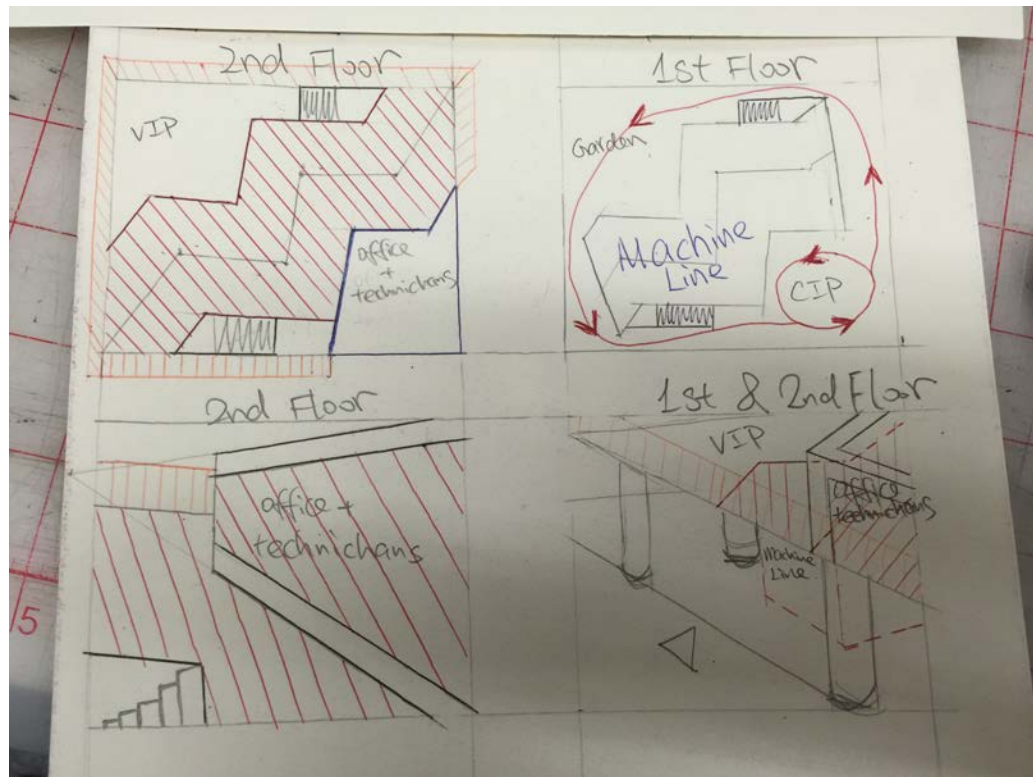 2nd Floor
VIP
office
+
technichans
1st Floor
Garden
Machine
Line
CIP
2nd Floor
office +
technichans
1st & 2nd Floor
VIP
office
technichans
Machine
Line
5